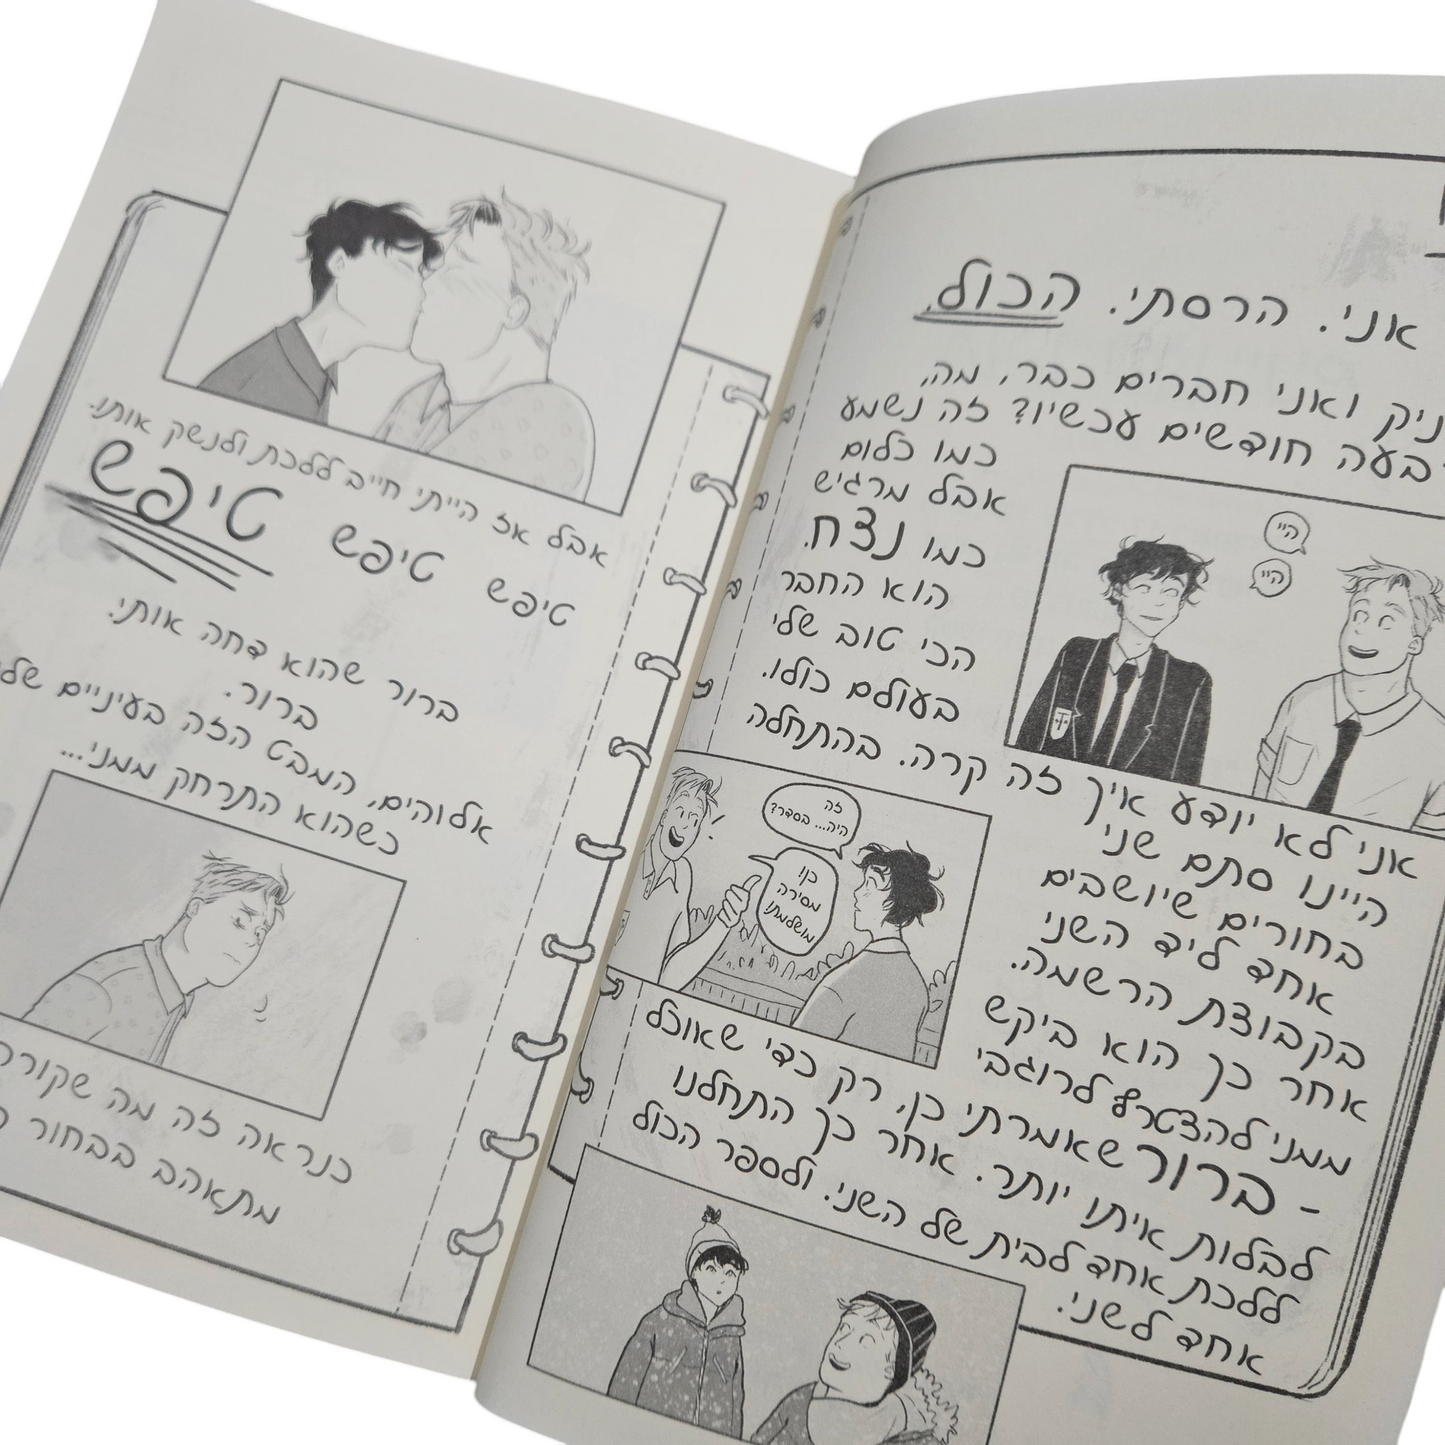 אני. הרסתי. הכול.
ניק ואני חברים כבר, מה,
חודשים עכשיו? זה נשמע
כמו כלום
אבל מרגיש
כמו נצח.
הוא החבר
הכי טוב שלי
בעולם כולו.
היי
היי
אני לא יודע איך זה קרה. בהתחלה
היינו סתם שני
בחורים שיושבים
אחד ליד השני
בקבוצת הרשמה.
אחר כך הוא ביקש
ממני להצטרף לרוגבי
זה
היה... בסדר?
כן!
מסירה
מושלמת!
- ברור שאמרתי כן, רק כדי שאוכל
לבלות איתו יותר. אחר כך התחלנו
ללכת אחד לבית של השני. ולספר הכול
אחד לשני.
אבל אז הייתי חייב ללכת ולנשק אותו.
טיפש טיפש טיפש
ברור שהוא דחה אותי.
ברור.
אלוהים, המבט הזה בעיניים שלו
כשהוא התרחק ממני...
כנראה זה מה שקורה
מתאהב בבחור